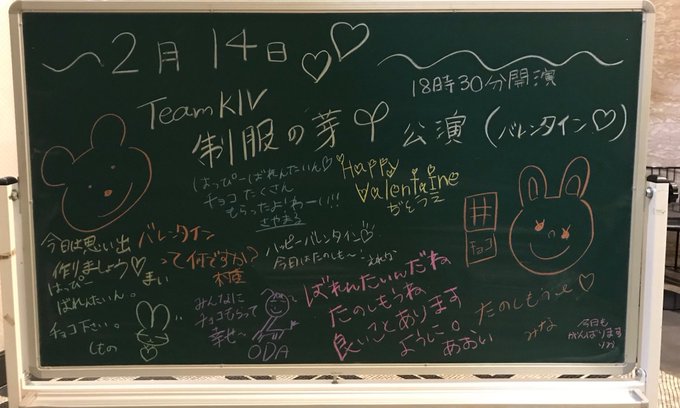 2月14日
18時30分開演
Team KIV
制服の芽 公演 (バレンタイン♡)
はっぴーばれんたいん♡
チョコたくさん
もらったよ!わーい!!
さやまる
Happy
Valentaine
ぢぞうミ
井
チョコ
今日は思い出
作りましょう♡
まい
バレンタイン
って何ですか?
村重
ハッピーバレンタイン♡
今日はたのしも〜!
はっぴー
ばれんたいん。
チョコ下さい。
しなの
みんなに
チョコもらって
幸せ〜
ODA
ばれんたいんだね
たのしもうね
良いことあります
ように。
あおい
たのしもうっと♡
みな
今日も
がんばります
りか